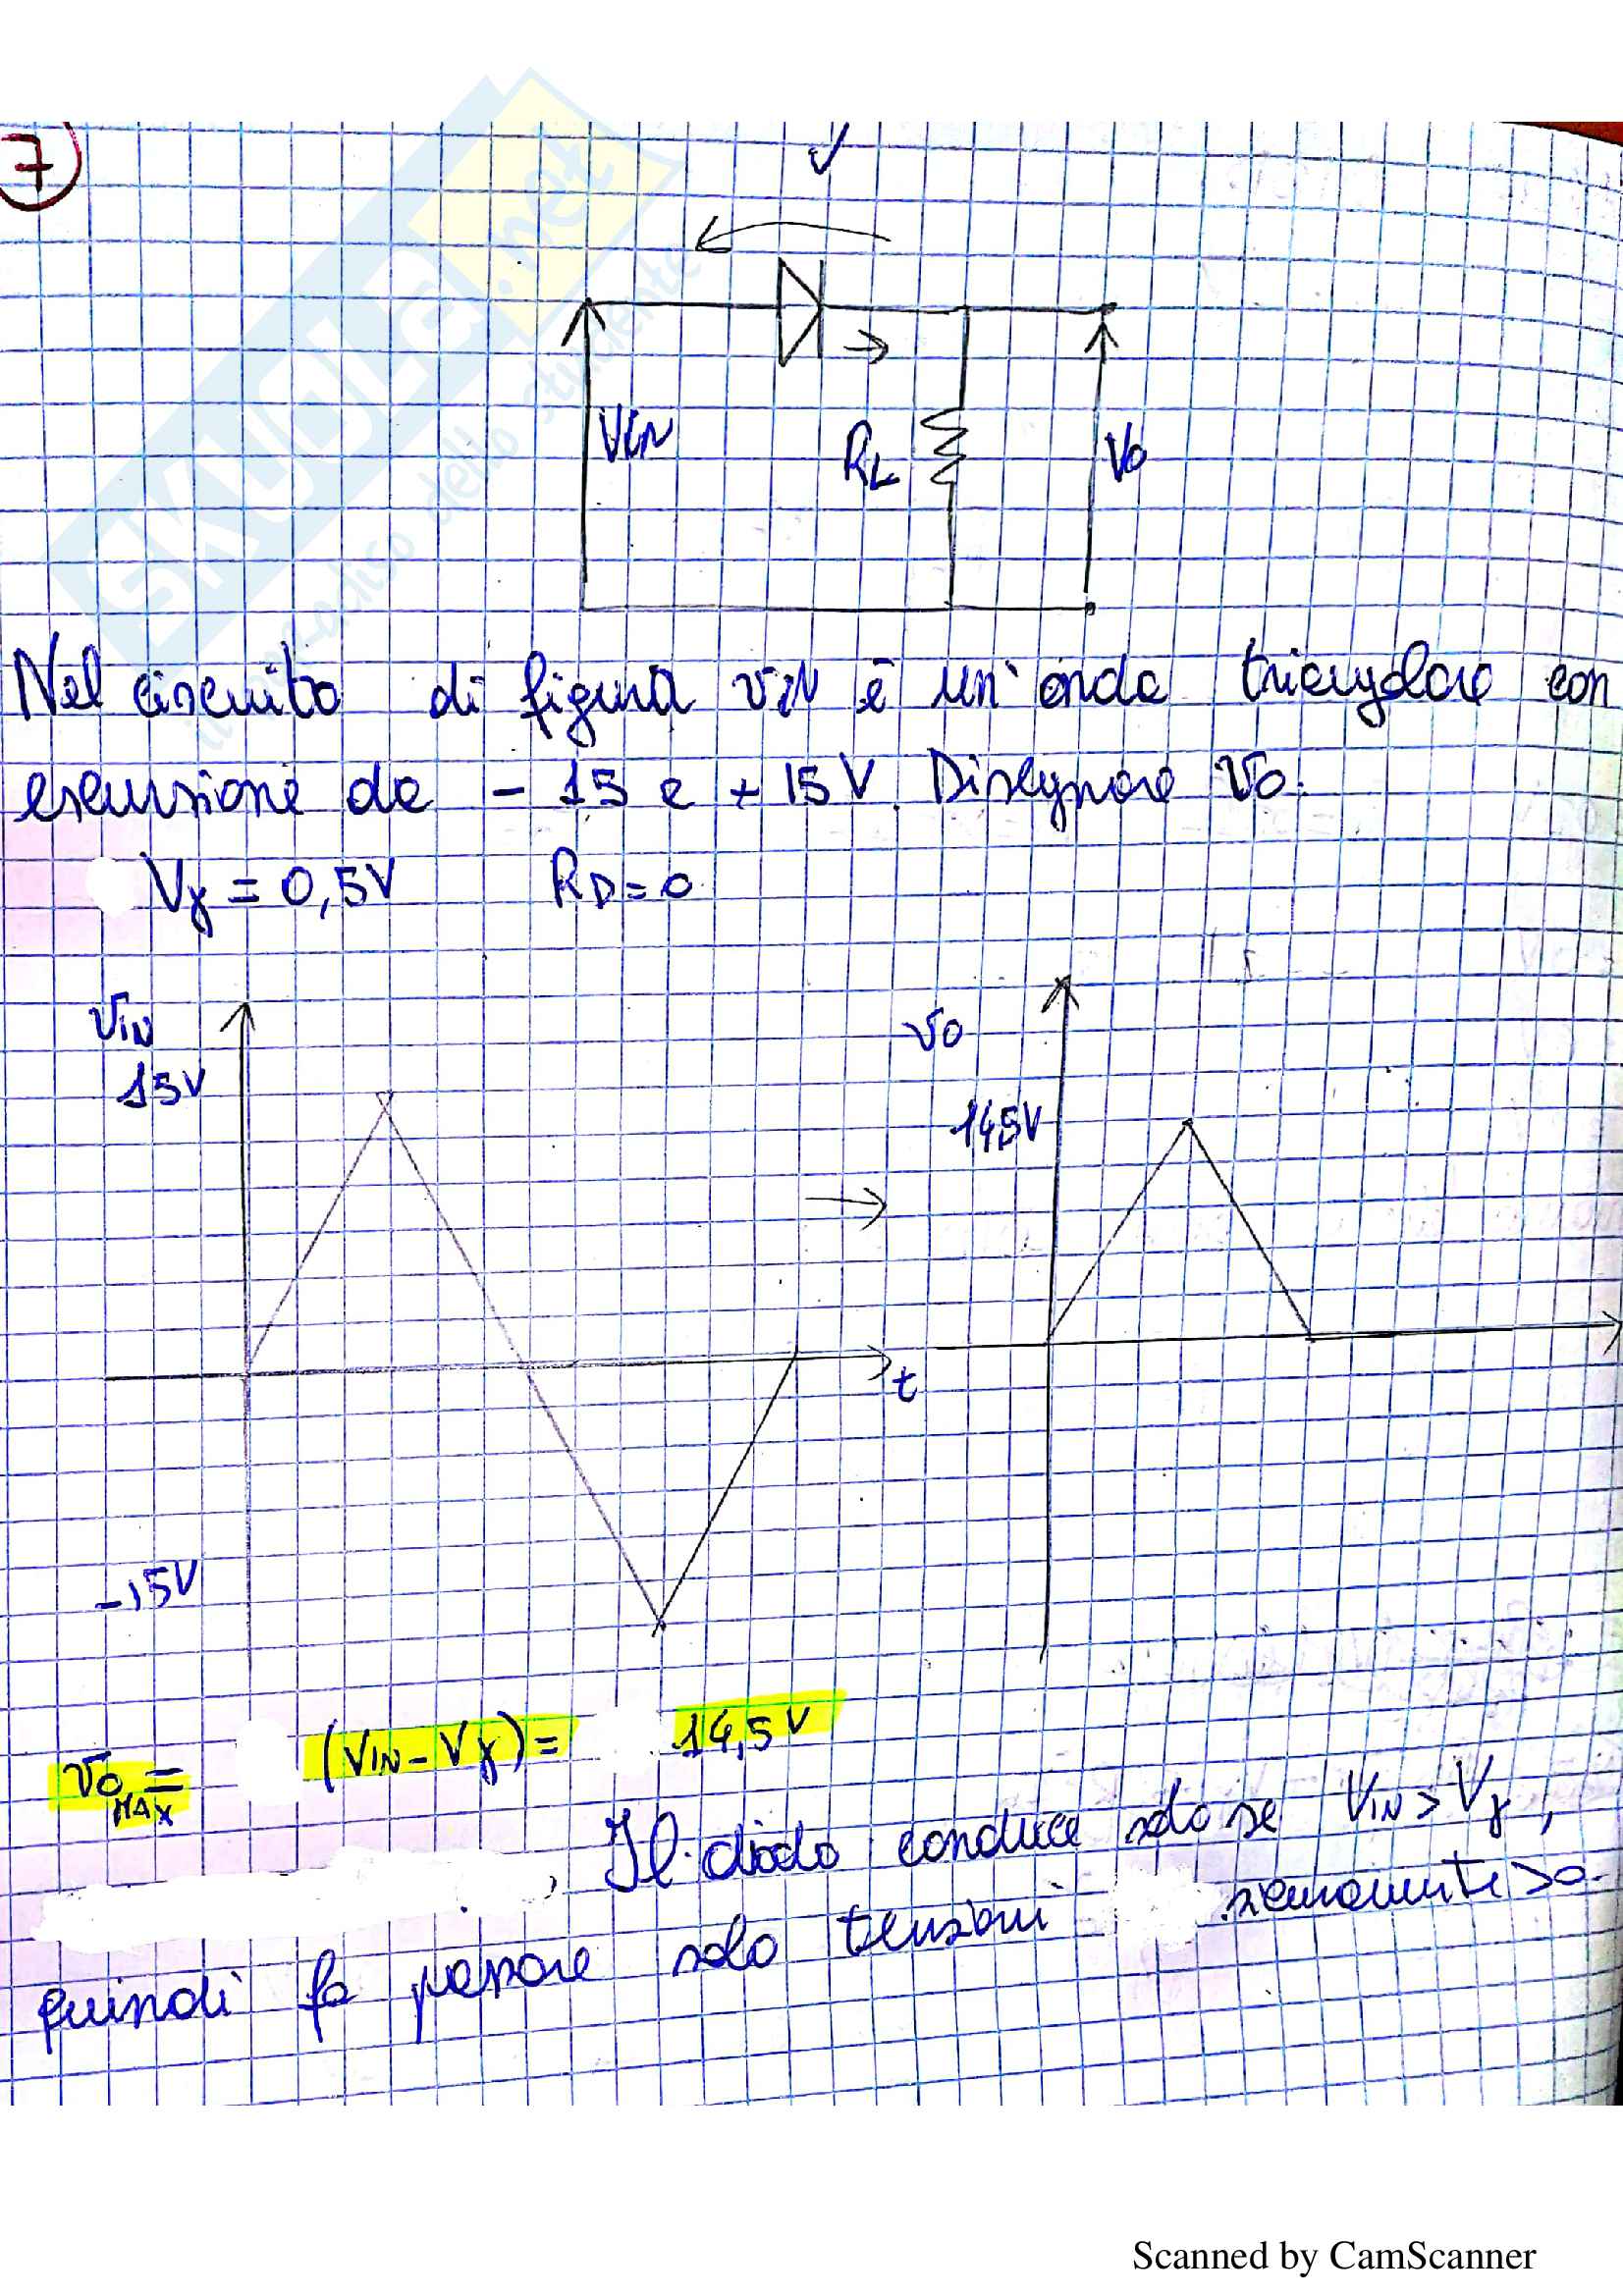 7
VIN
RL
Vo
Nel circuito di figura VIN è un'onda triangolare con
escursione da - 15 a + 15 V. Disegnare Vo.
Vγ = 0,5V RD = 0
VIN
15V
Vo
14,5V
t
-15V
Vo MAX = (VIN - Vγ) = 14,5 V
, Il diodo conduce solo se VIN > Vγ,
quindi fa passare solo tensioni >0.
SKUOLA.net
Scanned by CamScanner